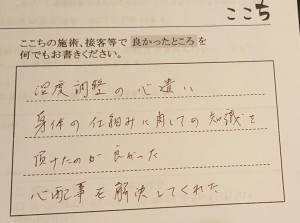 ここち
ここちの施術、接客等で良かったところを
何でもお書きください。
温度調整の心遣い
身体の仕組みに関しての知識を
頂けたのが良かった
心配事を解決してくれた